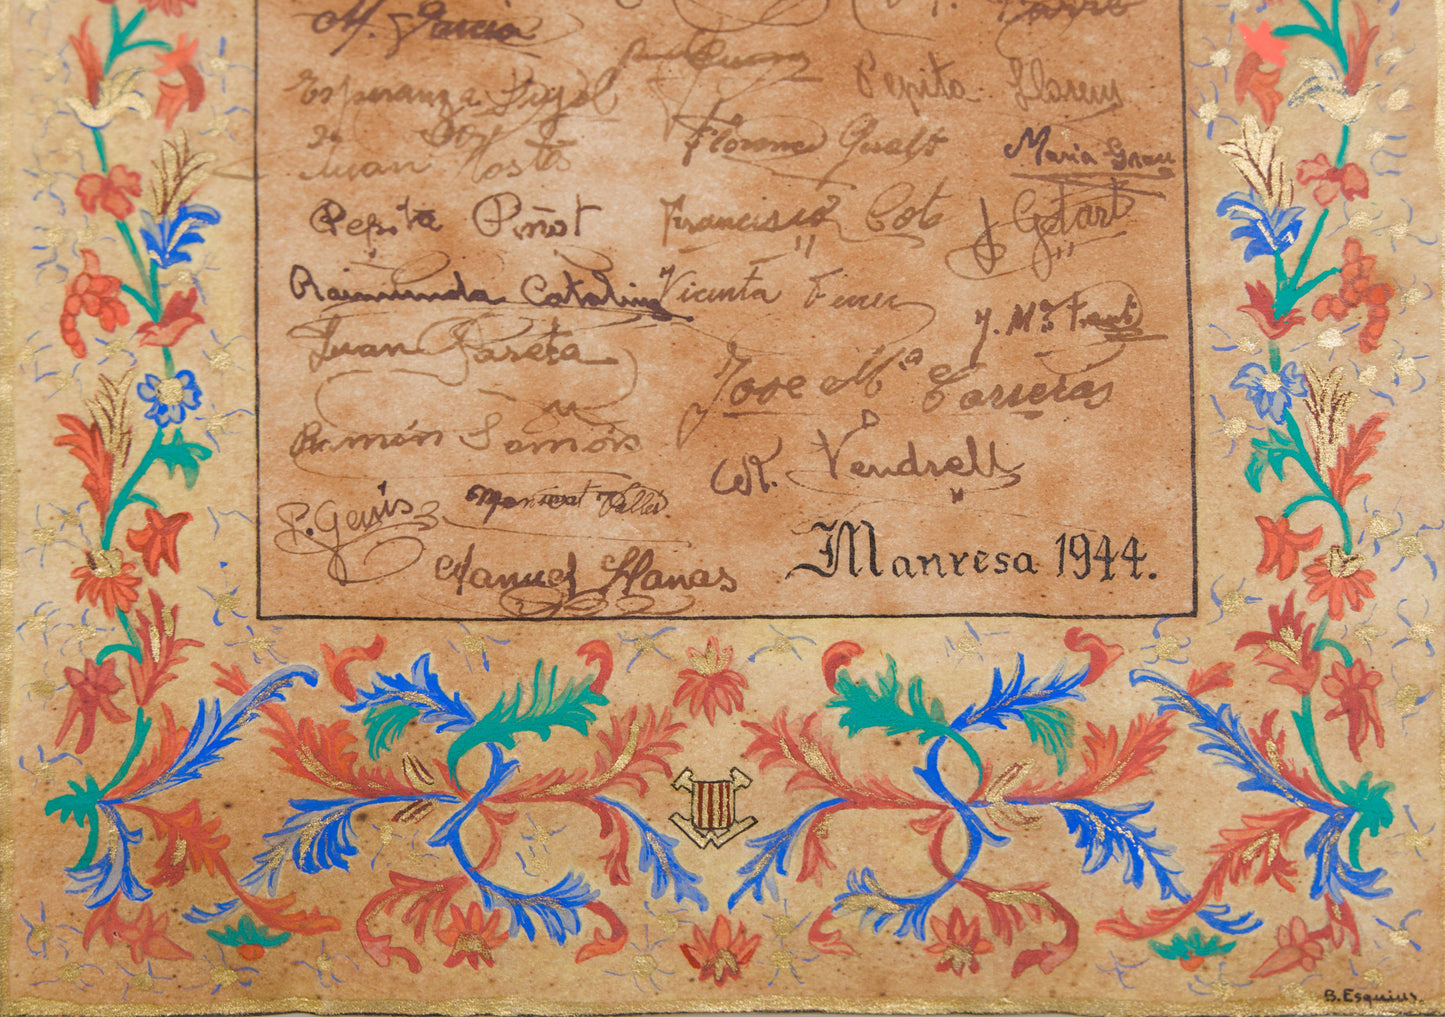 M. Garcia
Esperanza Pujol
Pepita Llorens
Juan Costa
Maria Grau
Pepita Piñot
Francisco Cots
J Getart
Raimunda Catalina
Vicenta Ferrer
J. Mª Font
Juan Pareta
José Mª Carreras
Ramón Samón
R. Vendrell
P. Genís
Montserrat Vallés
Manuel Llanas
Manresa 1944.
B. Esquius